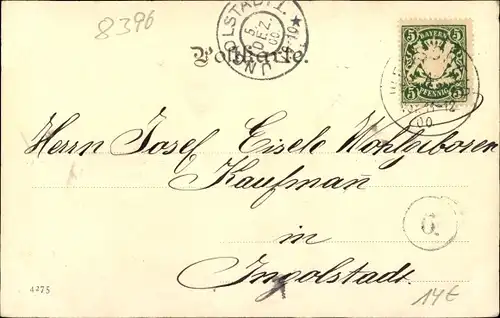 8396
INGOLSTADT I.
5.
DEZ.
00.
9-10
BAYERN
5 5
5 PFENNIG 5
11-12
00
Postkarte.
Herrn Josef Eisele Wohlgeboren
Kaufmann
in
Ingolstadt.
4275
14€